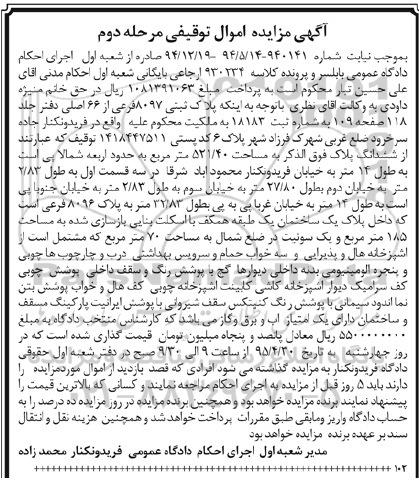 آگهی مزایده اموال توقیفی مرحله دوم
بموجب نیابت شماره ۹۴۰۱۴۱-۹۴/۵/۱۴ -۹۴/۱۲/۱۹ صادره از شعبه اول اجرای احکام
دادگاه عمومی بابلسر و پرونده کلاسه ۹۳۰۲۳۴ ارجاعی بایگانی شعبه اول احکام مدنی اقای
علی حسین تبار محکوم است به پرداخت مبلغ ۱۰۸۱۳۹۱۰۶۳ ریال در حق خانم منیژه
داودی به وکالت اقای نظری باتوجه به اینکه پلاک ثبتی ۸۰۹۷فرعی از ۶۶ اصلی دفتر جلد
۱۱۸ صفحه ۱۰۹ شماره ثبت ۱۸۱۸۳ به مالکیت محکوم علیه واقع در فریدونکنار جاده
سرخرود ضلع غربی شهرک فرزاد شهر پلاک ۶ کدپستی ۱۴۱۸۴۴۷۵۱۱ توقیف که عبارتند
از ششدانگ پلاک فوق الذکر به مساحت ۵۲۱/۴۰ متر مربع به حدود اربعه شمالا پی است
به طول ۱۴ متر به خیابان فریدونکنار محمود اباد شرقا در سه قسمت اول به طول ۲/۸۳
متر به خیابان دوم بطول ۲۷/۸۰ متر به خیابان سوم به طول ۲/۸۳ متر به خیابان جنوبا پی
است به طول ۱۴ متر به خیابان غربا پی به پی بطول ۳۲/۸۳ متر به پلاک ۸۰۹۶ فرعی است
که داخل پلاک یک ساختمان یک طبقه همکف با اسکلت بنایی بازسازی شده به مساحت
۱۸۵ متر مربع و یک سوئیت در ضلع شمال به مساحت ۷۰ متر مربع که مشتمل است از
اشپزخانه هال و پذیرایی و سه خواب حمام و سرویس بهداشتی درب و چارچوب ها چوبی
و پنجره الومینیومی بدنه داخلی دیوارها گچ با پوشش رنگ و سقف داخلی پوشش چوبی
کف سرامیک دیوار اشپزخانه کاشی کابینت اشپزخانه چوبی کف هال و خواب پوشش بتن
نما اندود سیمانی با پوشش رنگ کنیتکس سقف شیروانی با پوشش ایرانیت پارکینگ مسقف
و ساختمان دارای یک امتیاز اب و برق وگاز می باشد که کارشناس منتخب دادگاه به مبلغ
۵۵۰۰۰۰۰۰۰۰ ریال معادل پانصد و پنجاه میلیون تومان قیمت گذاری شده است که در
روز چهارشنبه به تاریخ ۹۵/۴/۳۰ از ساعت ۹ الی ۹/۳۰ صبح در دفتر شعبه اول حقوقی
دادگاه فریدونکنار به مزایده گذاشته می شود افرادی که قصد بازدید از اموال موردمزایده را
دارند باید ۵ روز قبل از مزایده به اجرای احکام مراجعه نمایند و کسانی که بالاترین قیمت را
پیشنهاد نمایند برنده مزایده خواهد بود و همچنین برنده مزایده در روز مزایده ده درصد را به
حساب دادگاه واریز ومابقی طبق مقررات پرداخت خواهد شد و همچنین هزینه نقل و انتقال
سند بر عهده برنده مزایده خواهد بود
مدیر شعبه اول اجرای احکام دادگاه عمومی فریدونکنار محمد زاده
۱۰۲